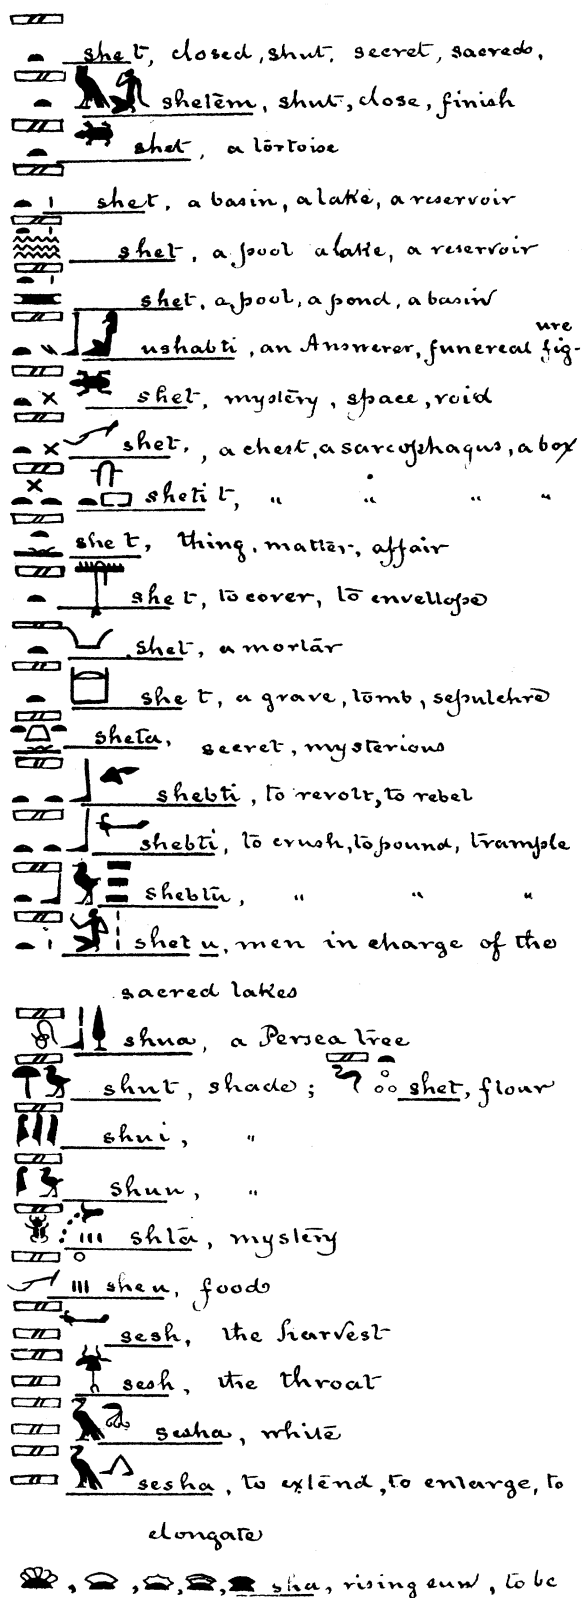 shet, closed, shut, secret, sacred,
shetem, shut, close, finish
shet, a tortoise
shet, a basin, a lake, a reservoir
shet, a pool a lake, a reservoir
shet, a pool, a pond, a basin
ushabti, an Answerer, funereal fig-ure
shet, mystery, space, void
shet, a chest, a sarcophagus, a box
shetit, " " " "
shet, thing, matter, affair
shet, to cover, to envellope
shet, a mortar
shet, a grave, tomb, sepulchre
sheta, secret, mysterious
shebti, to revolt, to rebel
shebti, to crush, to pound, trample
shebtu, " " "
shetu, men in charge of the
sacred lakes
shua, a Persea tree
shut, shade; shet, flour
shui, "
shuu, "
shta, mystery
sheu, food
sesh, the harvest
sesh, the throat
sesha, white
sesha, to extend, to enlarge, to
elongate
sha, rising sun, to be